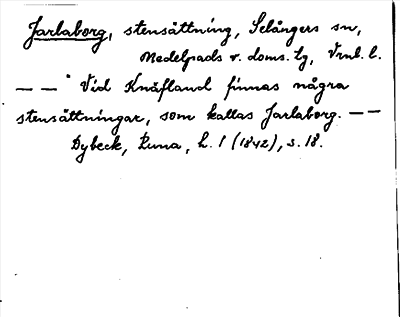 Jarlaborg, stensättning, Selångers sn,
Medelpads v. doms. tg, Vrnl. l.
— — " Vid Knäfland finnas några
stensättningar, som kallas Jarlaborg. — —
Dybeck, Runa, h. 1 (1842), s. 18.